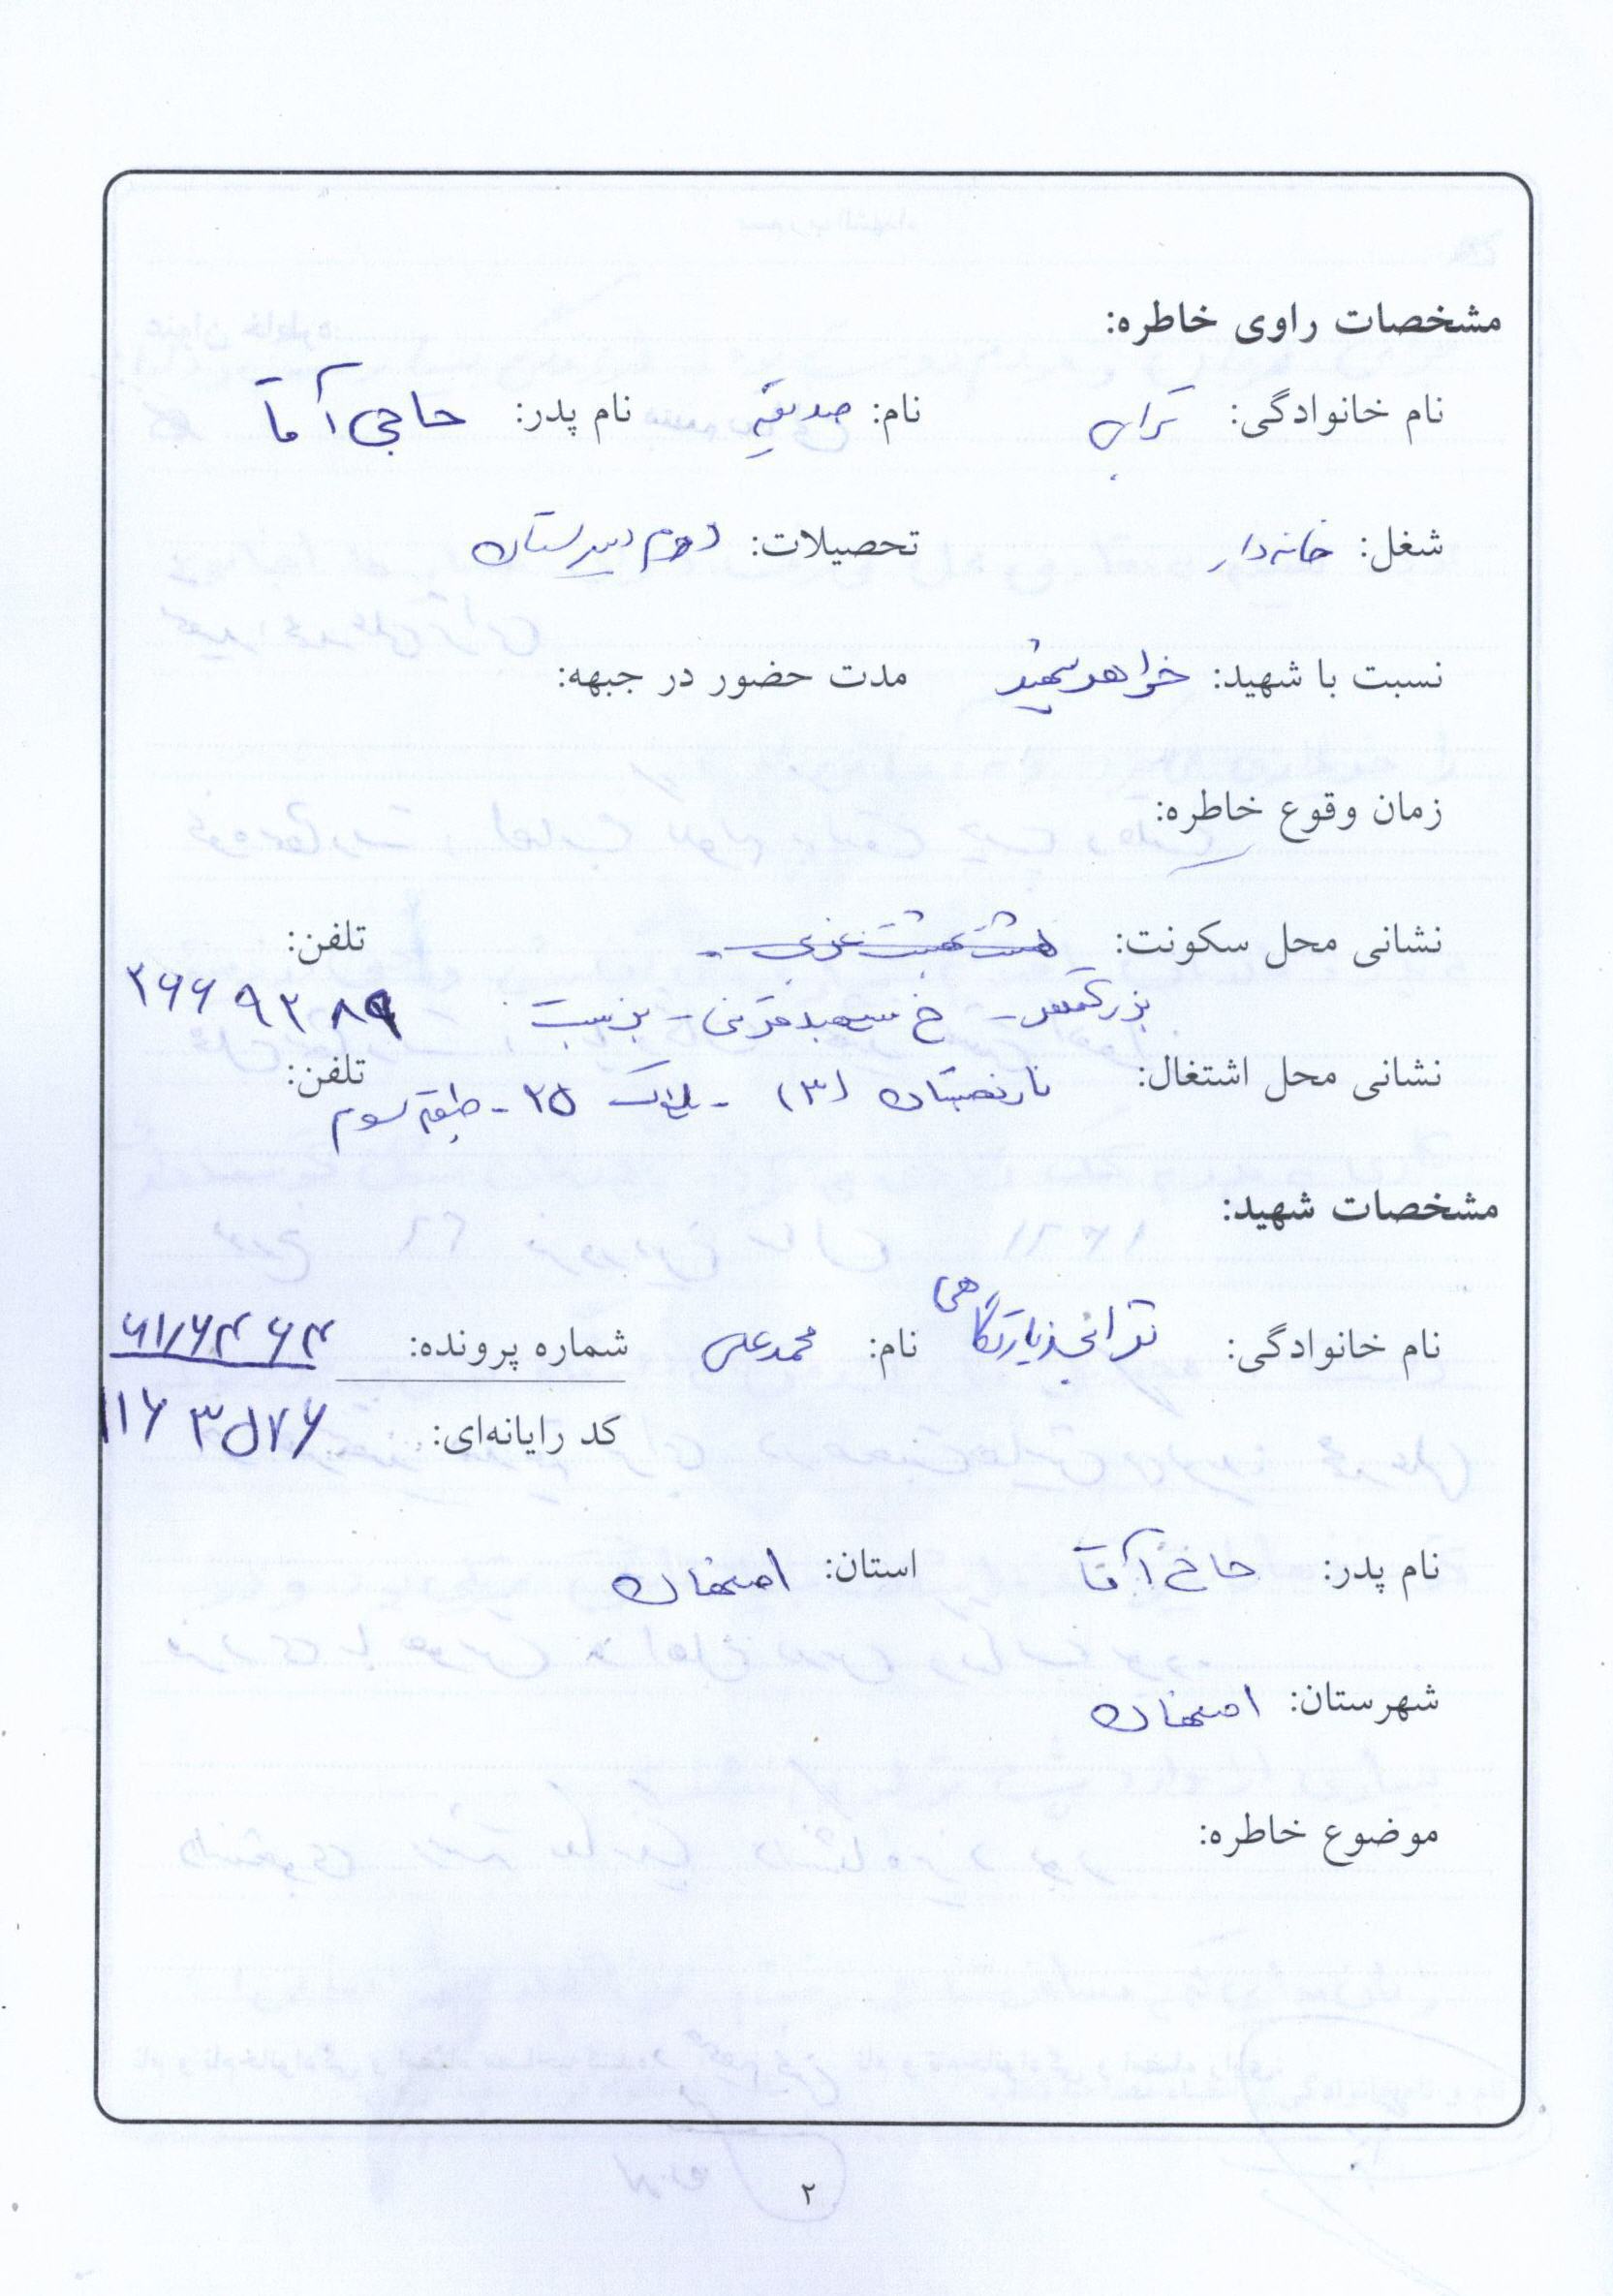 مشخصات راوی خاطره:
نام خانوادگی: ترابی نام: صدیقه نام پدر: حاجی آقا
شغل: خانه دار تحصیلات: دوم دبیرستان
نسبت با شهید: خواهر شهید مدت حضور در جبهه:
زمان وقوع خاطره:
نشانی محل سکونت: هشت بهشت غربی - تلفن:
بزرگمهر - خ شهید قرنی - بن بست
نشانی محل اشتغال: نارنجستان (۳) - پلاک ۲۵ - طبقه سوم تلفن:
مشخصات شهید:
نام خانوادگی: ترابی زیارتگاهی نام: محمدعلی شماره پرونده:
کد رایانه‌ای: ۱۱۶۳۵۷۶
نام پدر: حاج آقا استان: اصفهان
شهرستان: اصفهان
موضوع خاطره:
۲